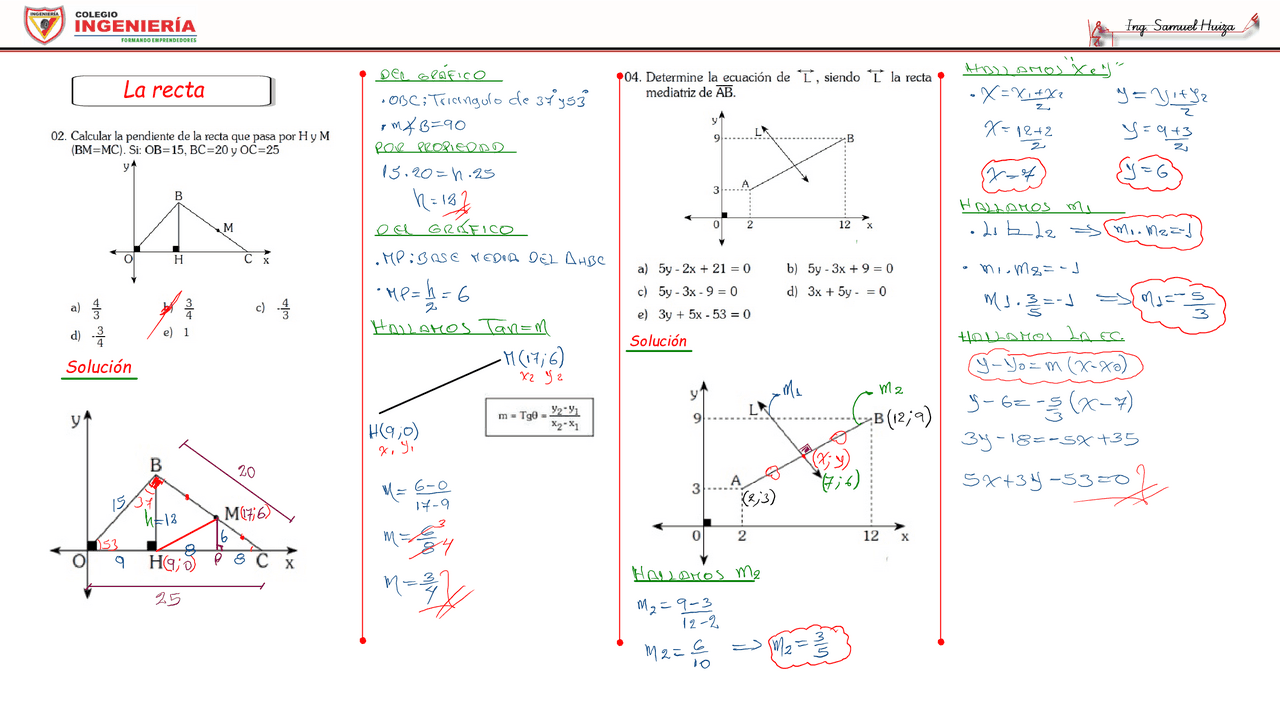 COLEGIO
INGENIERÍA
FORMANDO EMPRENDEDORES
Ing. Samuel Huiza
La recta
02. Calcular la pendiente de la recta que pasa por H y M
(BM=MC). Si: OB=15, BC=20 y OC=25
y
B
M
O H C x
a) 4/3
b) 3/4
c) -4/3
d) -3/4
e) 1
Solución
y
B
20
15
37
h=12
M(17;6)
6
53
8
O 9 H(9;0) P 8 C x
25
DEL GRÁFICO
• OBC: Triangulo de 37° y 53°
• m∡B=90
POR PROPIEDAD
15.20=h.25
h=12
DEL GRÁFICO
• MP: BASE MEDIA DEL ΔHBC
• MP=h/2=6
HALLAMOS Tan=m
M(17;6)
x2 y2
H(9;0)
x1 y1
m = Tgθ = y2-y1/x2-x1
M=6-0/17-9
M=6/8 3 4
M=3/4
04. Determine la ecuación de L, siendo L la recta
mediatriz de AB.
y
9 L B
A
3
0 2 12 x
a) 5y - 2x + 21 = 0
b) 5y - 3x + 9 = 0
c) 5y - 3x - 9 = 0
d) 3x + 5y - = 0
e) 3y + 5x - 53 = 0
Solución
y
L m1 m2
9 B(12;9)
(x;y)
A (7;6)
3 (2;3)
0 2 12 x
HALLAMOS m2
m2=9-3/12-2
m2=6/10 ⇒ m2=3/5
HALLAMOS "X e Y"
• X=X1+X2/2 y=y1+y2/2
X=12+2/2 y=9+3/2
X=7 y=6
HALLAMOS m1
• L1 ⊥ L2 ⇒ m1.m2=-1
• m1.m2=-1
m1.3/5=-1 ⇒ m1=-5/3
HALLAMOS LA EC.
y-y0=m(x-x0)
y-6=-5/3(x-7)
3y-18=-5x+35
5x+3y-53=0